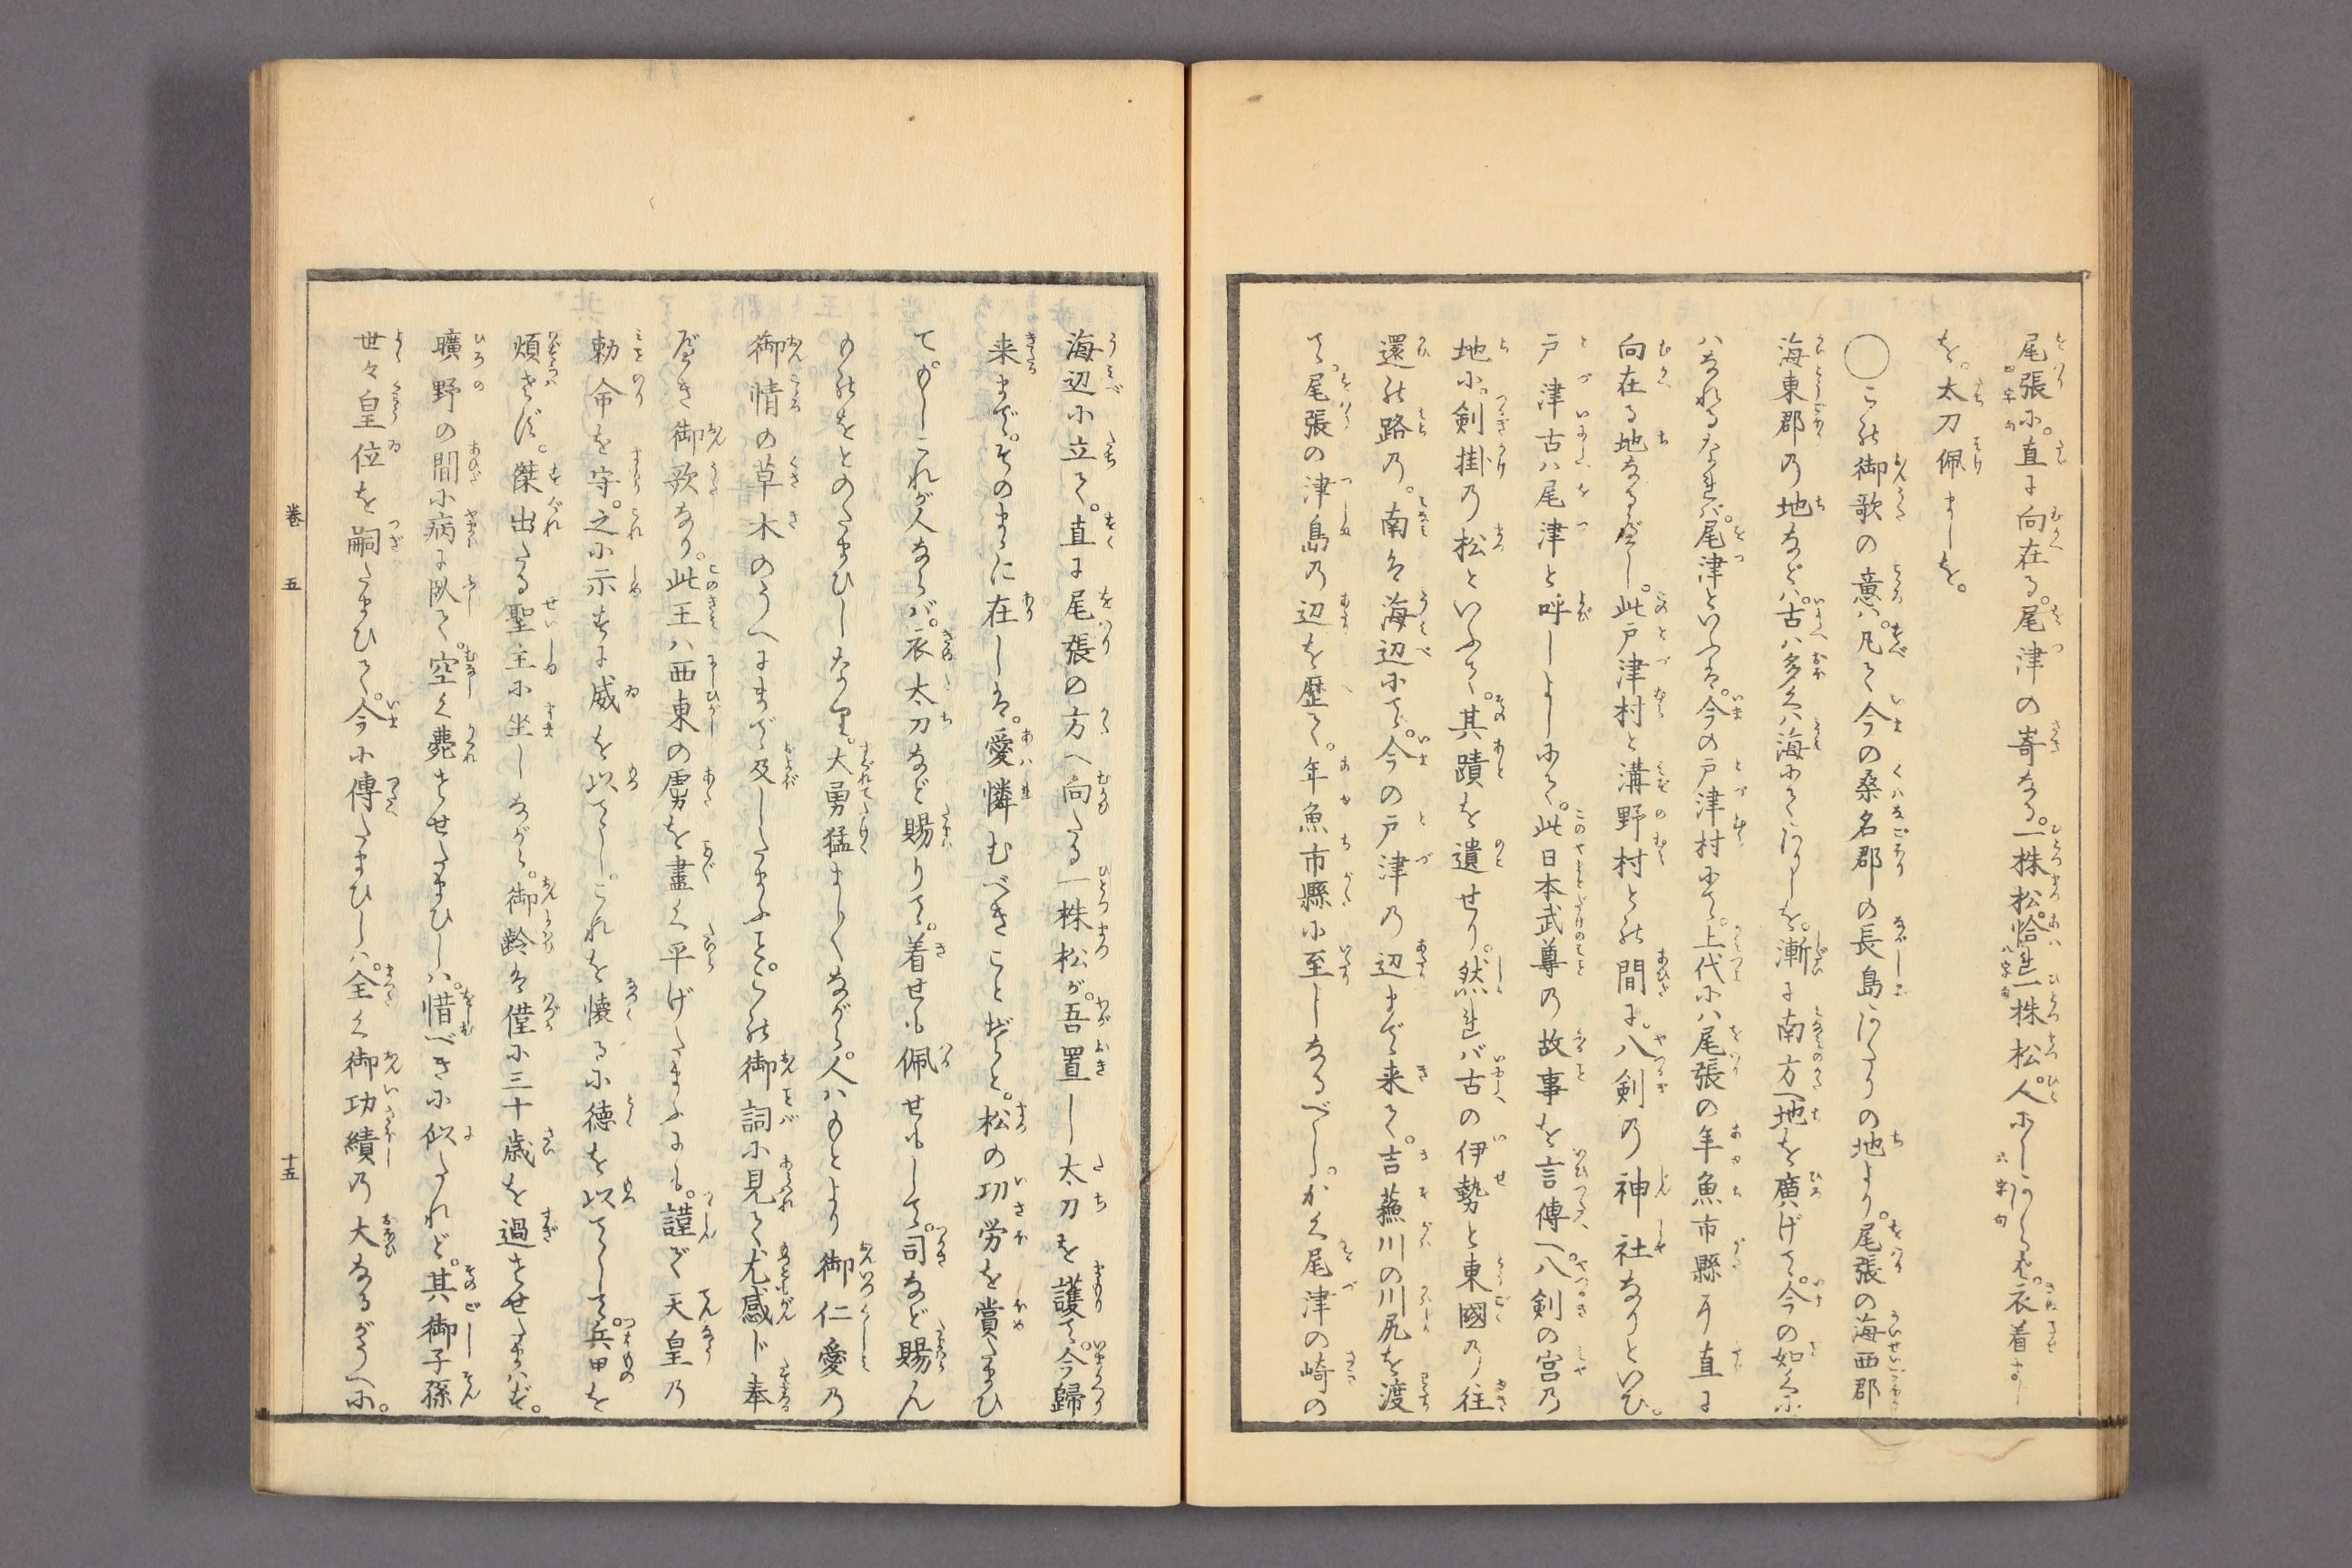 尾張に。直に向在る。尾津の嵜なる。一株松。恰一株松。人にしあらば。衣着まし
を。太刀佩ましを。
○これ御歌の意は。凡て今の桑名郡の長島あたりの地より。尾張の海西郡
海東郡の地など。古は多くは海にてありしを。漸に南方へ地を廣げて。今の如くに
はなれるなれば。尾津といふは。今の戸津村にて。上代には尾張の年魚市縣に直に
向在る地なるべし。此戸津村と溝野村との間に。八剣の神社なりといひ。
戸津古は尾津と呼しよしにて。此日本武尊の故事を言傳へ。八剣の宮の
地に。剣掛の松といふて。其蹟を遺せり。然れば古の伊勢と東國の往
還の路の。南は海辺にて。今の戸津の辺まで来て。吉蘓川の川尻を渡
て。尾張の津島の辺を歴て。年魚市縣に至しなるべし。かく尾津の崎の
海辺に立て。直に尾張の方へ向たる一株松が。吾置し太刀を護て。今歸
来まで。そのまゝに在しは。愛憐むべきことぞと。松の功労を賞たまひ
て。もしこれが人ならば。衣太刀など賜りて。着せも佩せもして。司など賜らん
ものをとのたまひしなり。大勇猛ましくながら。人はもとより御仁愛の
御情の草木のうへにまで及したまふこと。これ御詞に見えて。尤感じ奉
べき御歌なり。此王は西東の虜を盡く平げたまふにも。謹で天皇の
勅命を守。之に示すに威を以てし。これを懐るに徳を以てして。兵甲を
煩さず。傑出たる聖主に坐しながら。御齢は僅に三十歳を過させたまはず。
曠野の間に病に臥て。空く薨させたまひしは。惜べきに似たれど。其御子孫
世々皇位を嗣たまひて。今に傳たまひしは。全く御功績の大なるがゆへに。
巻五　十五